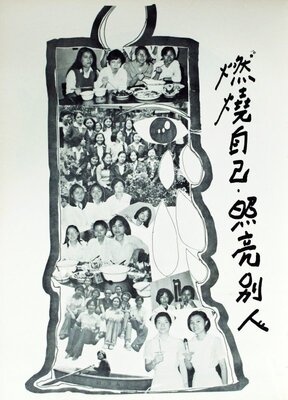 燃燒自己·照亮別人